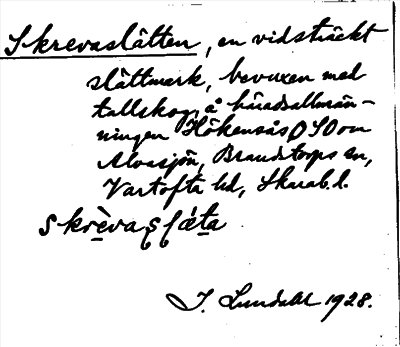 Skrevaslätten, en vidsträckt
slättmark, bevuxen med
tallskog å häradsallmän-
ningen Hökensås OSO om
Alvasjön, Brandstorps sn,
Vartofta hd, Skarab. l.
skrèvasslǽta
J. Lundahl 1928.